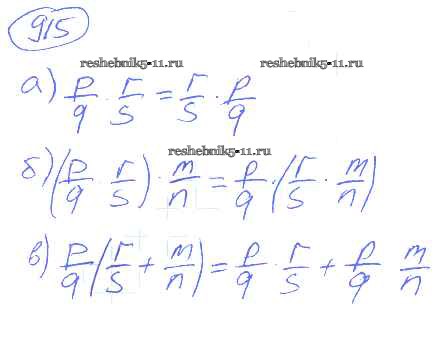 915
reshebnik5-11.ru reshebnik5-11.ru
а) p/q · r/s = r/s · p/q
reshebnik5-11.ru
б) (p/q · r/s) · m/n = p/q · (r/s · m/n)
в) p/q (r/s + m/n) = p/q · r/s + p/q m/n